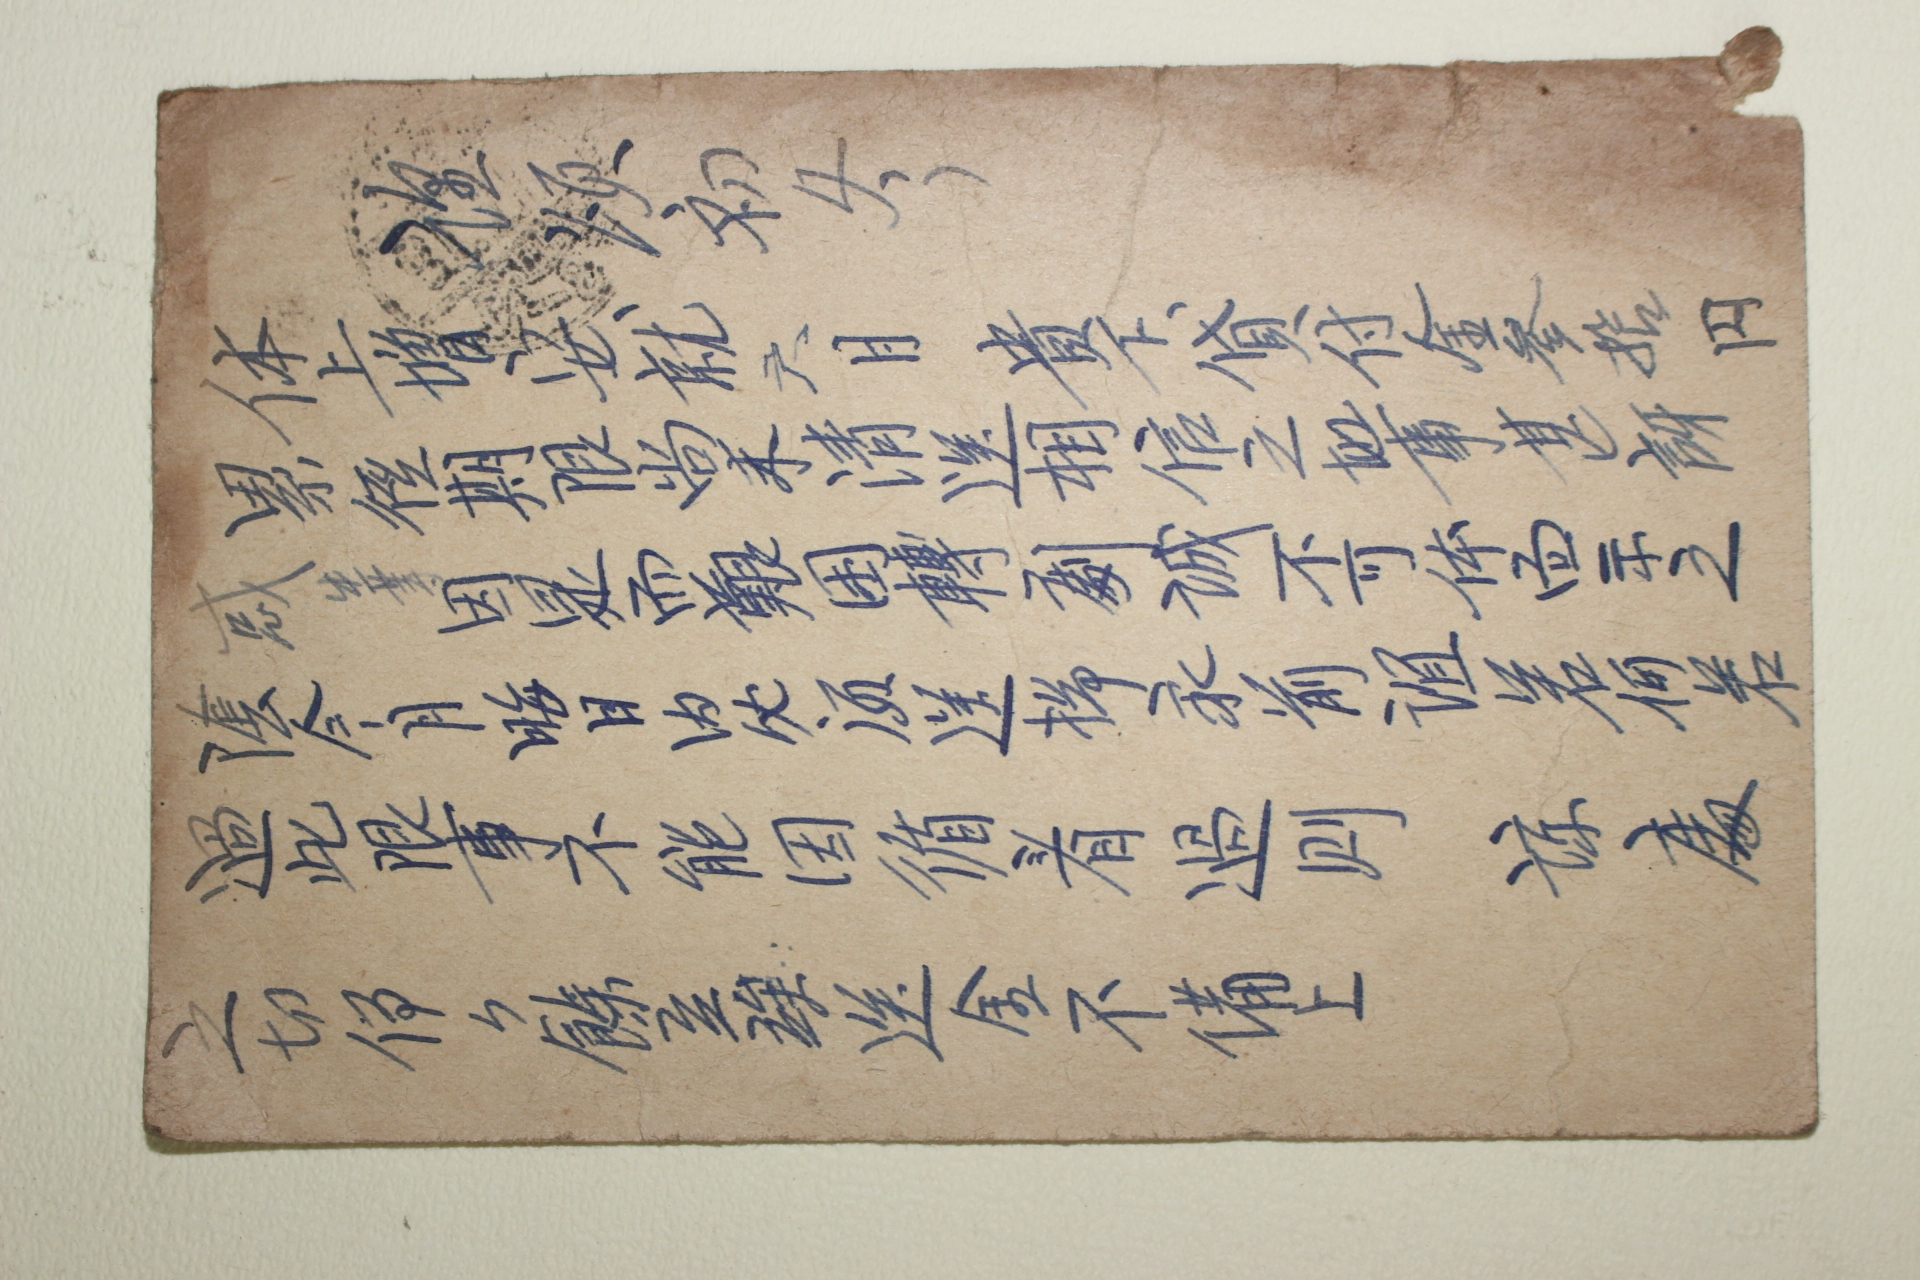 謹頌初冬
体上增安、就六月 貴下、貸付金參拾円
累徑期限尚未清送相信之地事甚訝
惑 生等 因是而艱困轉劇誠不可体面示之
陰今月晦日内必須送 前誼若何若
過此限事不能因循看過則 諒處
之切仰々餘 送金不備上